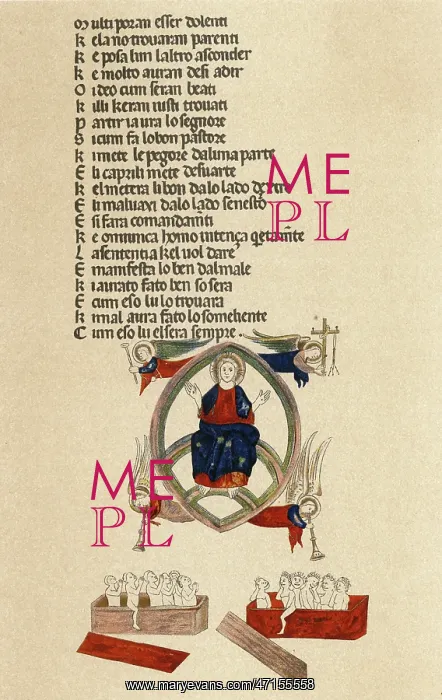 Multi poran esser dolenti
k ela no trouarani parenti
k e posa lun laltro asconder
k e molto auran desi adir
O ideo cum seran beati
k illi keran iusti trouati
P artir ia ura lo segnore
S icum fa lo bon pastore
k i mete le pegore da luna parte
E li caprili mete desuarte
k el metera li bon da lo lado
E li maluaxi da lo lado senestro
E si fara comandamti
k e omiunca homo intença
L a sententia kel uol dare
E manifesta lo ben dal male
k i aurato fato ben so sera
E cum eso lu lo trouara
k i mal aura fato lo somehente
C um eso lu elsera sempre.
ME
PL
ME
PL
www.maryevans.com/47155558